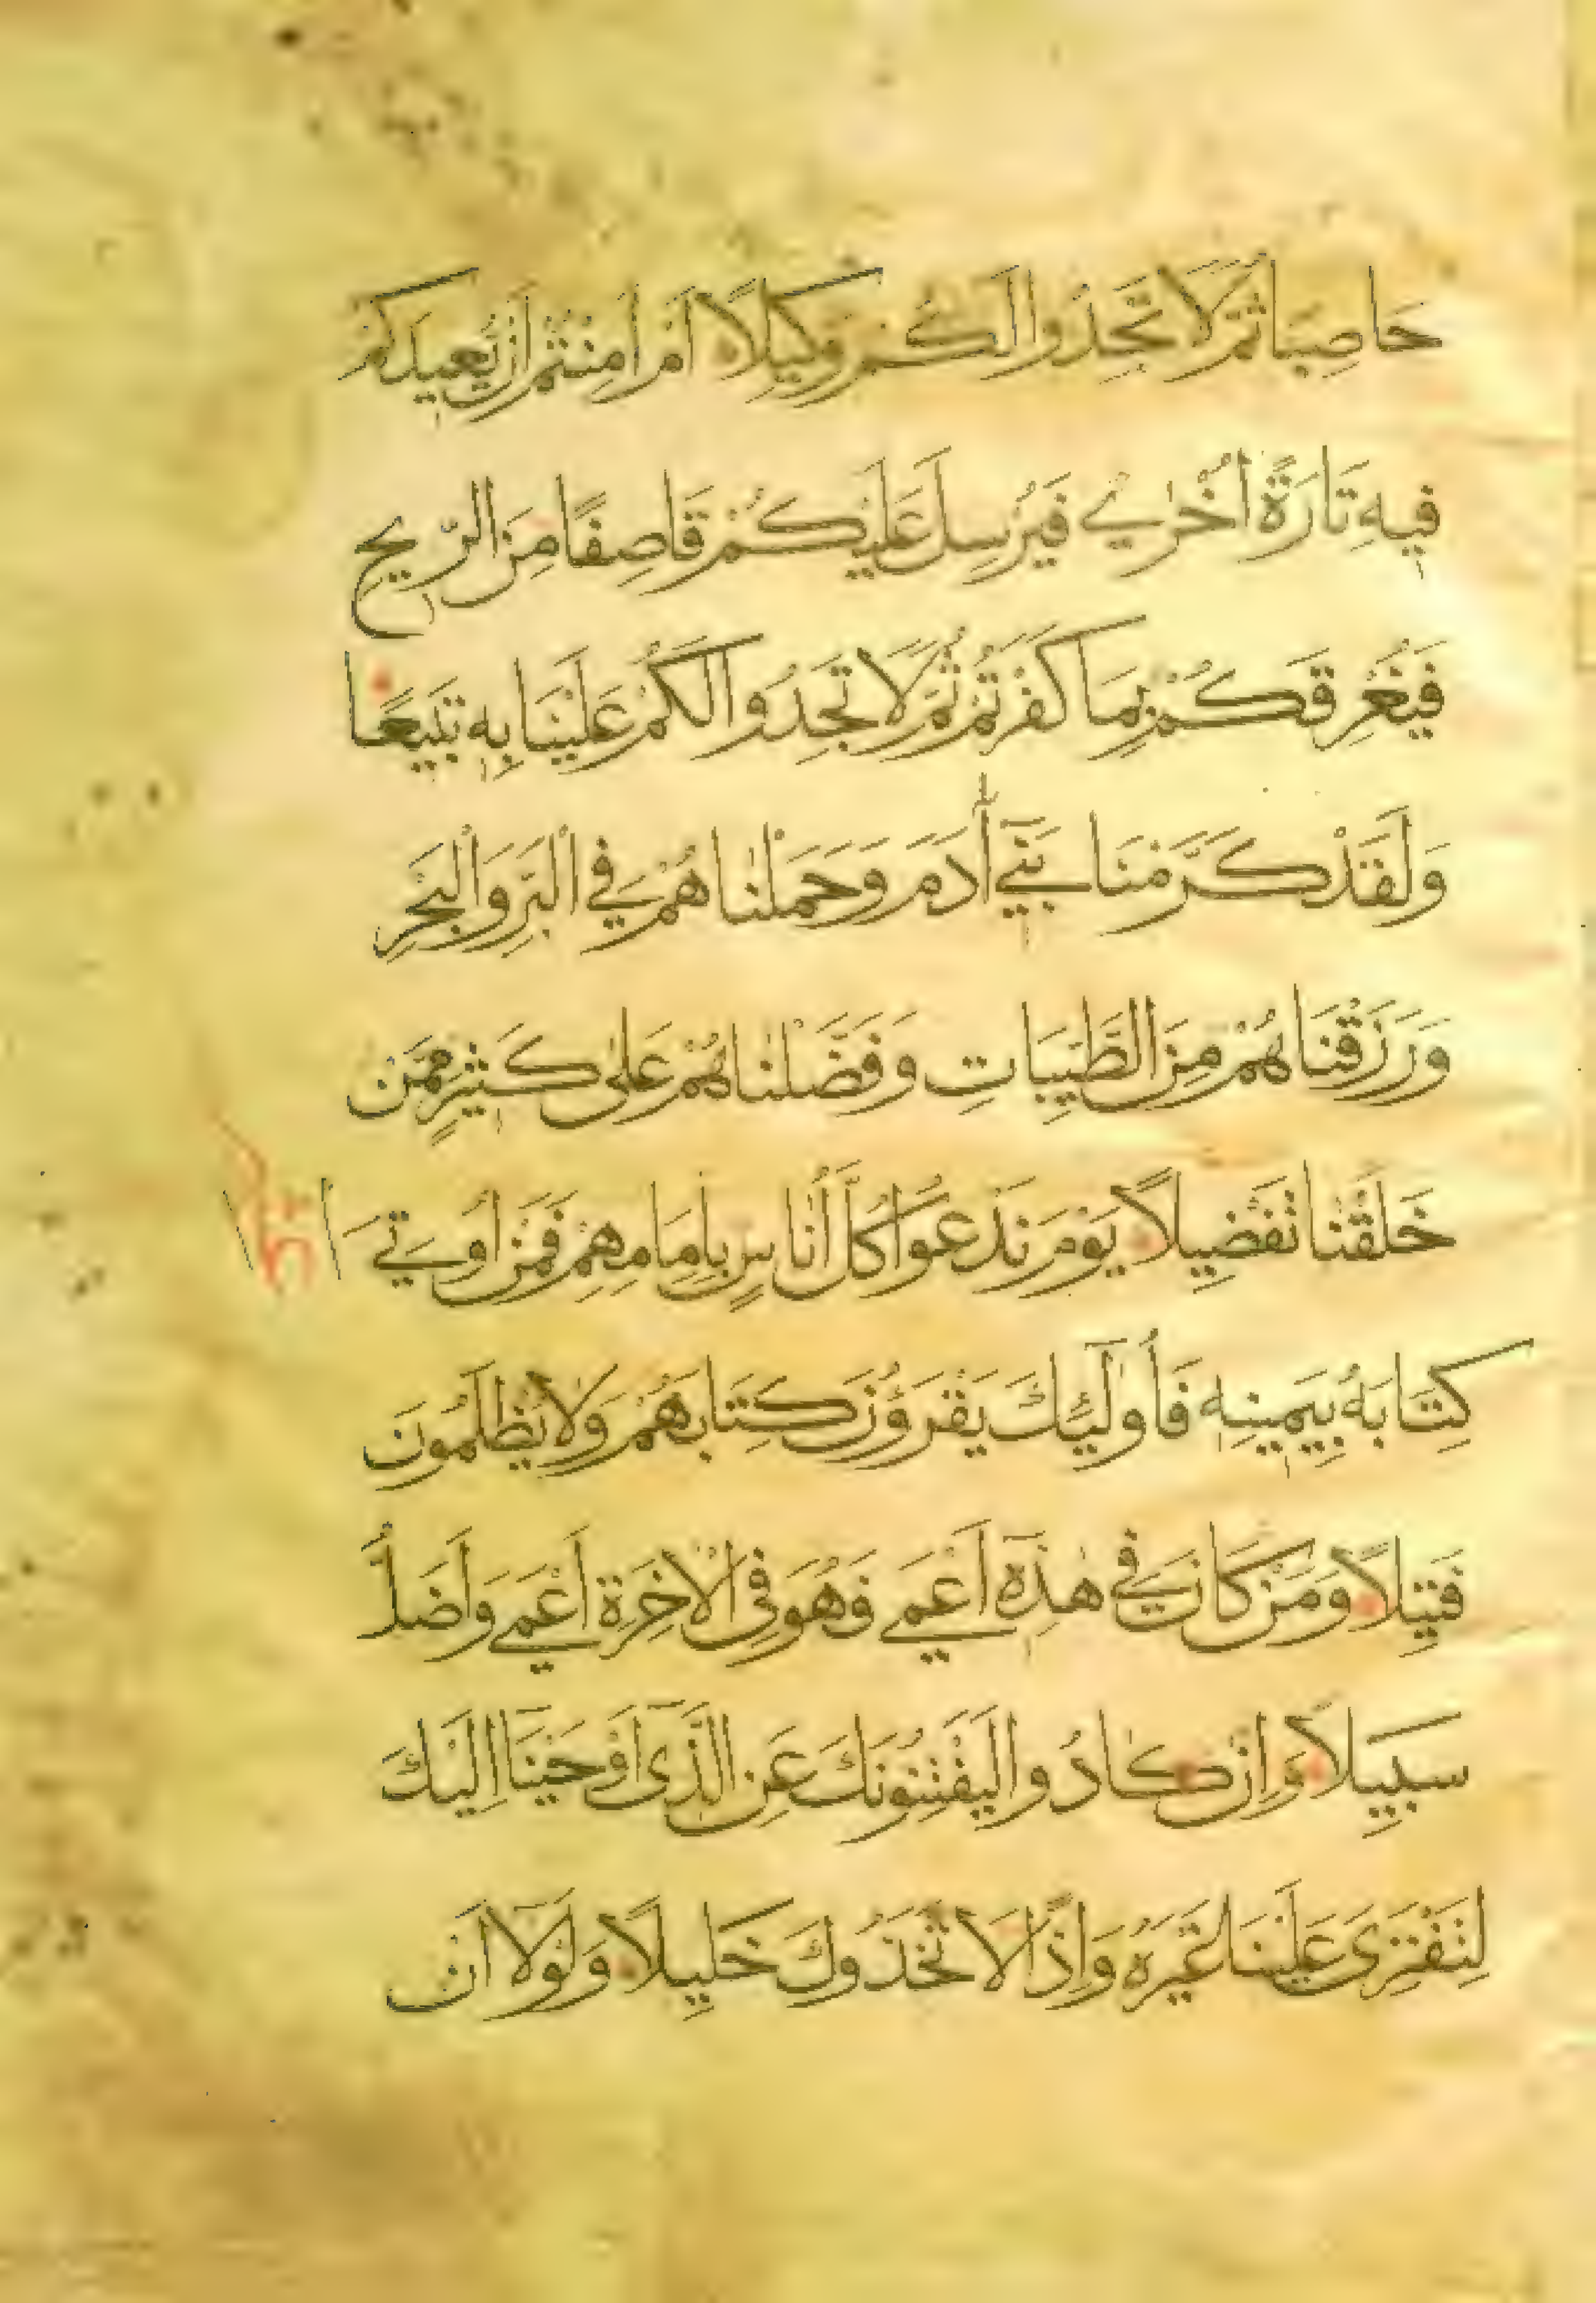 حَاصِبًا ثُمَّ لَا تَجِدُوا لَكُمْ وَكِيلًا أَمْ أَمِنْتُمْ أَنْ يُعِيدَكُمْ
فِيهِ تَارَةً أُخْرٰي فَيُرْسِلَ عَلَيْكُمْ قَاصِفًا مِنَ الرِّيحِ
فَيُغْرِقَكُمْ بِمَا كَفَرْتُمْ ثُمَّ لَا تَجِدُوا لَكُمْ عَلَيْنَا بِهِ تَبِيعًا
وَلَقَدْ كَرَّمْنَا بَنِيٓ اٰدَمَ وَحَمَلْنَاهُمْ فِي الْبَرِّ وَالْبَحْرِ
وَرَزَقْنَاهُمْ مِنَ الطَّيِّبَاتِ وَفَضَّلْنَاهُمْ عَلٰى كَثِيرٍ مِمَّنْ
خَلَقْنَا تَفْضِيلًا يَوْمَ نَدْعُوا كُلَّ أُنَاسٍ بِإِمَامِهِمْ فَمَنْ أُوتِيَ
كِتَابَهُ بِيَمِينِهِ فَأُولٰٓئِكَ يَقْرَؤُنَ كِتَابَهُمْ وَلَا يُظْلَمُونَ
فَتِيلًا وَمَنْ كَانَ فِي هٰذِهِٓ أَعْمَي فَهُوَ فِي الْاٰخِرَةِ أَعْمَي وَأَضَلُّ
سَبِيلًا وَإِنْ كَادُوا لَيَفْتِنُونَكَ عَنِ الَّذِٓى أَوْحَيْنَٓا إِلَيْكَ
لِتَفْتَرِىَ عَلَيْنَا غَيْرَهُ وَإِذًا لَاتَّخَذُوكَ خَلِيلًا وَلَوْلَٓا أَنْ